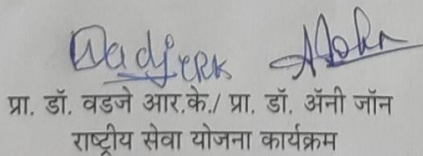 WadjeRK
प्रा. डॉ. वडजे आर.के./ प्रा. डॉ. ॲनी जॉन
राष्ट्रीय सेवा योजना कार्यक्रम